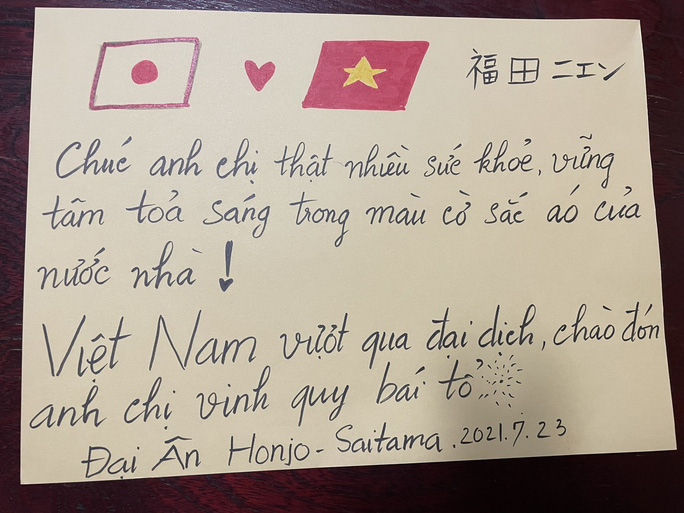 福田ニエン
Chúc anh chị thật nhiều sức khoẻ, vững
tâm toả sáng trong màu cờ sắc aó của
nước nhà!
Việt Nam vượt qua đại dich, chào đón
anh chị vinh quy bái tổ
Đại Ân Honjo - Saitama. 2021.7.23